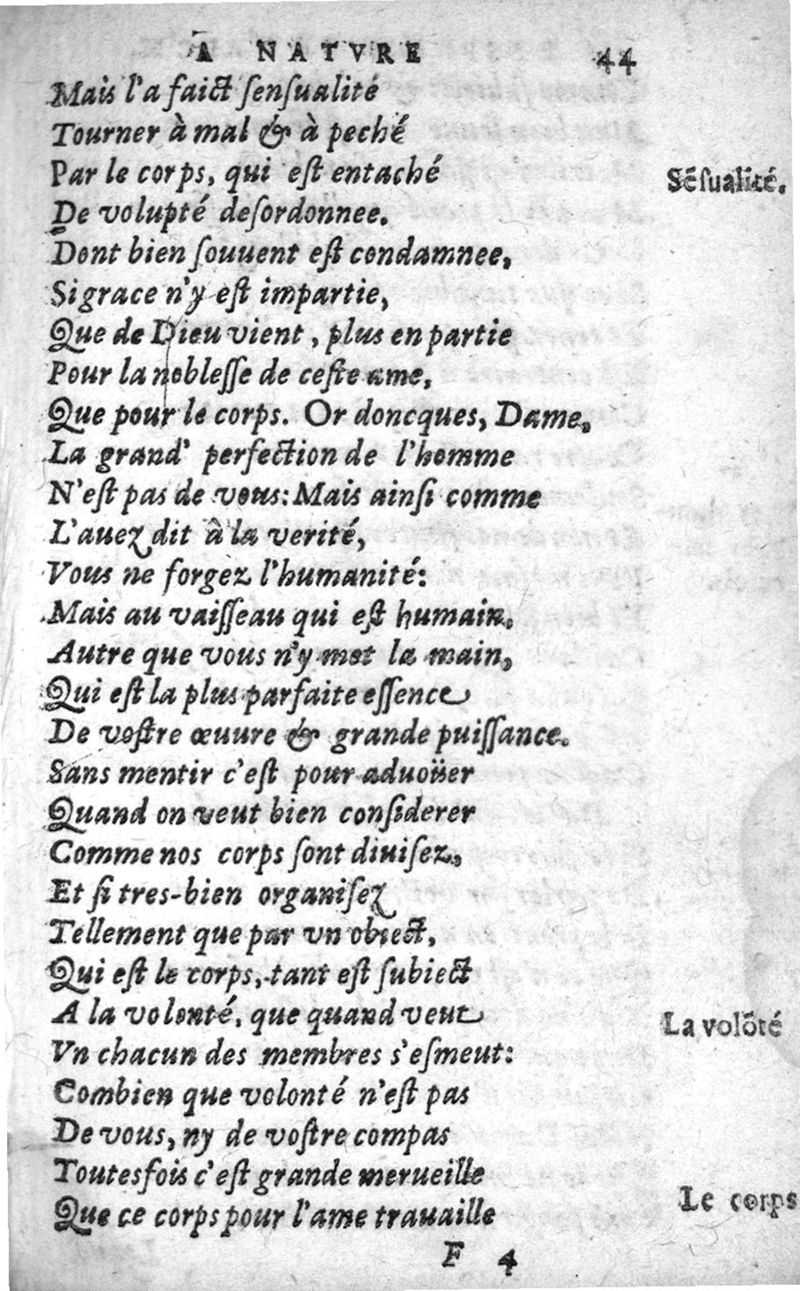 A NATVRE 44
Mais l'a faict ſenſualité
Tourner à mal & à peché
Par le corps, qui eſt entaché
Sēſualité.
De volupté deſordonnee.
Dont bien ſouuent eſt condamnee,
Si grace n'y eſt impartie,
Que de Dieu vient, plus en partie
Pour la nobleſſe de ceſte ame,
Que pour le corps. Or doncques, Dame,
La grand' perfection de l'homme
N'eſt pas de vous: Mais ainſi comme
L'auez dit à la verité,
Vous ne forgez l'humanité:
Mais au vaiſſeau qui eſt humain,
Autre que vous n'y met la main,
Qui eſt la plus parfaite eſſence
De voſtre œuure & grande puiſſance.
Sans mentir c'eſt pour aduoüer
Quand on veut bien conſiderer
Comme nos corps ſont diuiſez,
Et ſi tres-bien organiſez
Tellement que par vn obiect,
Qui eſt le corps, tant eſt ſubiect
A la volonté, que quand veut
La volōté
Vn chacun des membres s'eſmeut:
Combien que volonté n'eſt pas
De vous, ny de voſtre compas
Toutesfois c'eſt grande merueille
Le corps
Que ce corps pour l'ame trauaille
F 4